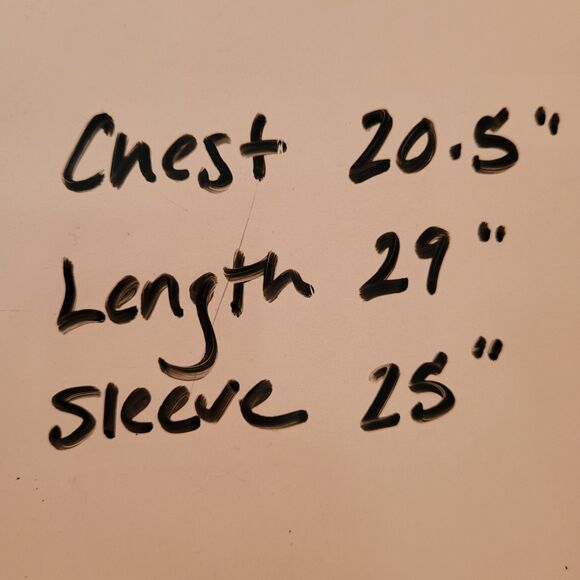 Chest 20.5"
Length 29"
Sleeve 25"